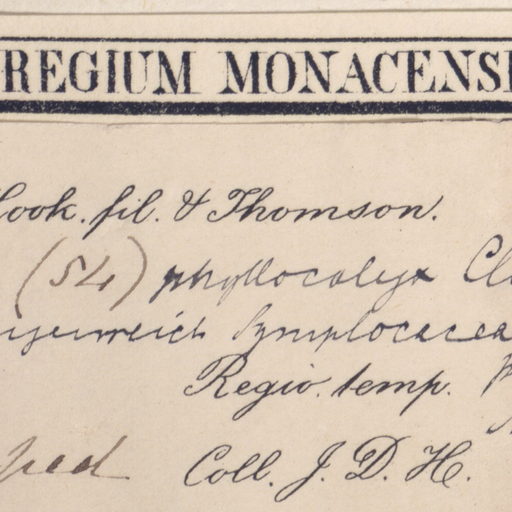 REGIUM MONACENS
Hook. fil. & Thomson.
(54) phyllocalyx Cl
Symplocacea
Regio. temp.
Coll. J. D. H.